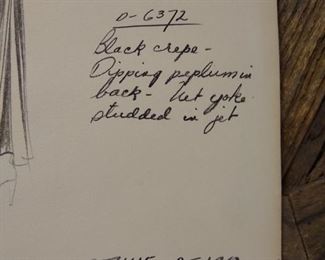 D-6372
Black crepe-
Dipping peplum in
back- Net yoke
studded in jet